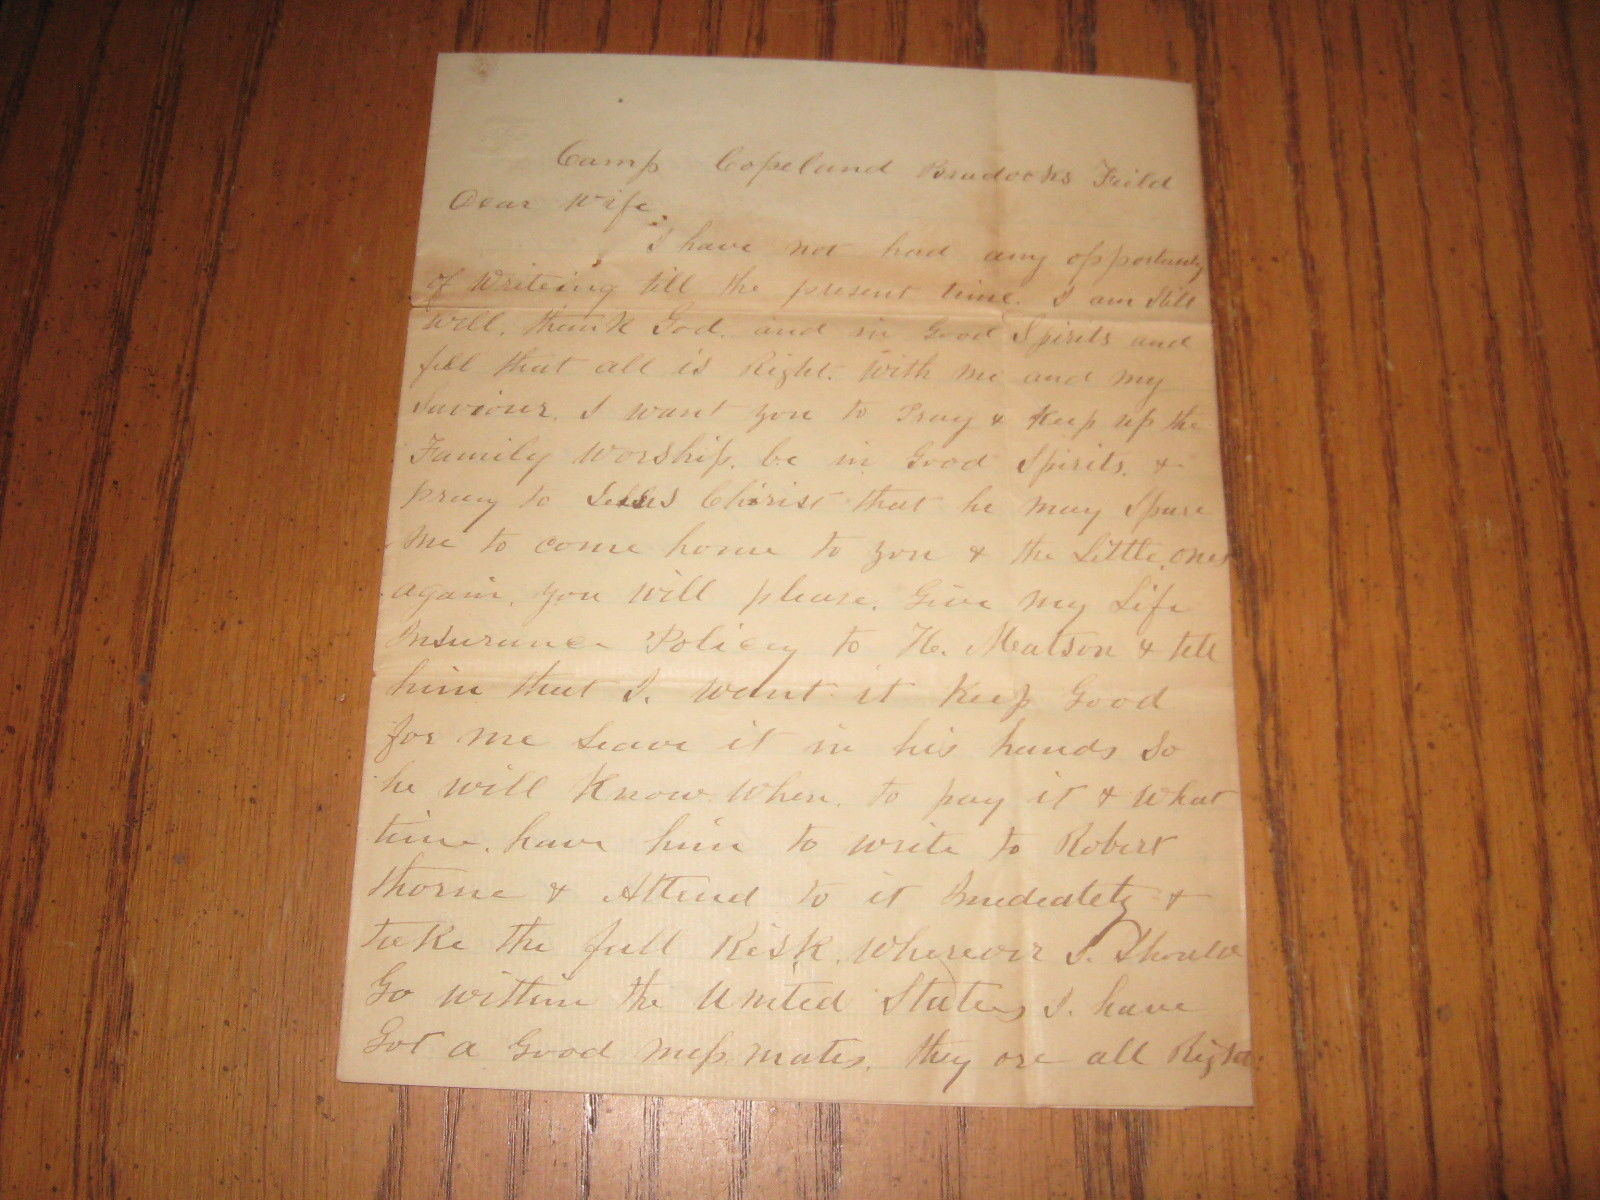 Camp Copeland Bradocks Feild
Dear Wife.
I have not had any oppertunity
of Writeing till the present time. I am Still
well. thank God. and in Good Spirits and
feel that all is Right. With me and my
Saviour. I want you to Pray & Keep up the
Family Worship. be in Good Spirits. &
pray to Jesus Christ that he may Spare
me to come home to you & the Little ones
again. you will please. Give my Life
Insurance Policy to H. Matson & tell
him that I. want it Keep Good
for me Leave it in his hands So
he will Know When. to pay it & What
time. have him to write to Robert
thorne & Attend to it Imediately &
take the full Risk. Wherever I. Should
Go within the United States I. have
Got a Good mess mates. they are all Right